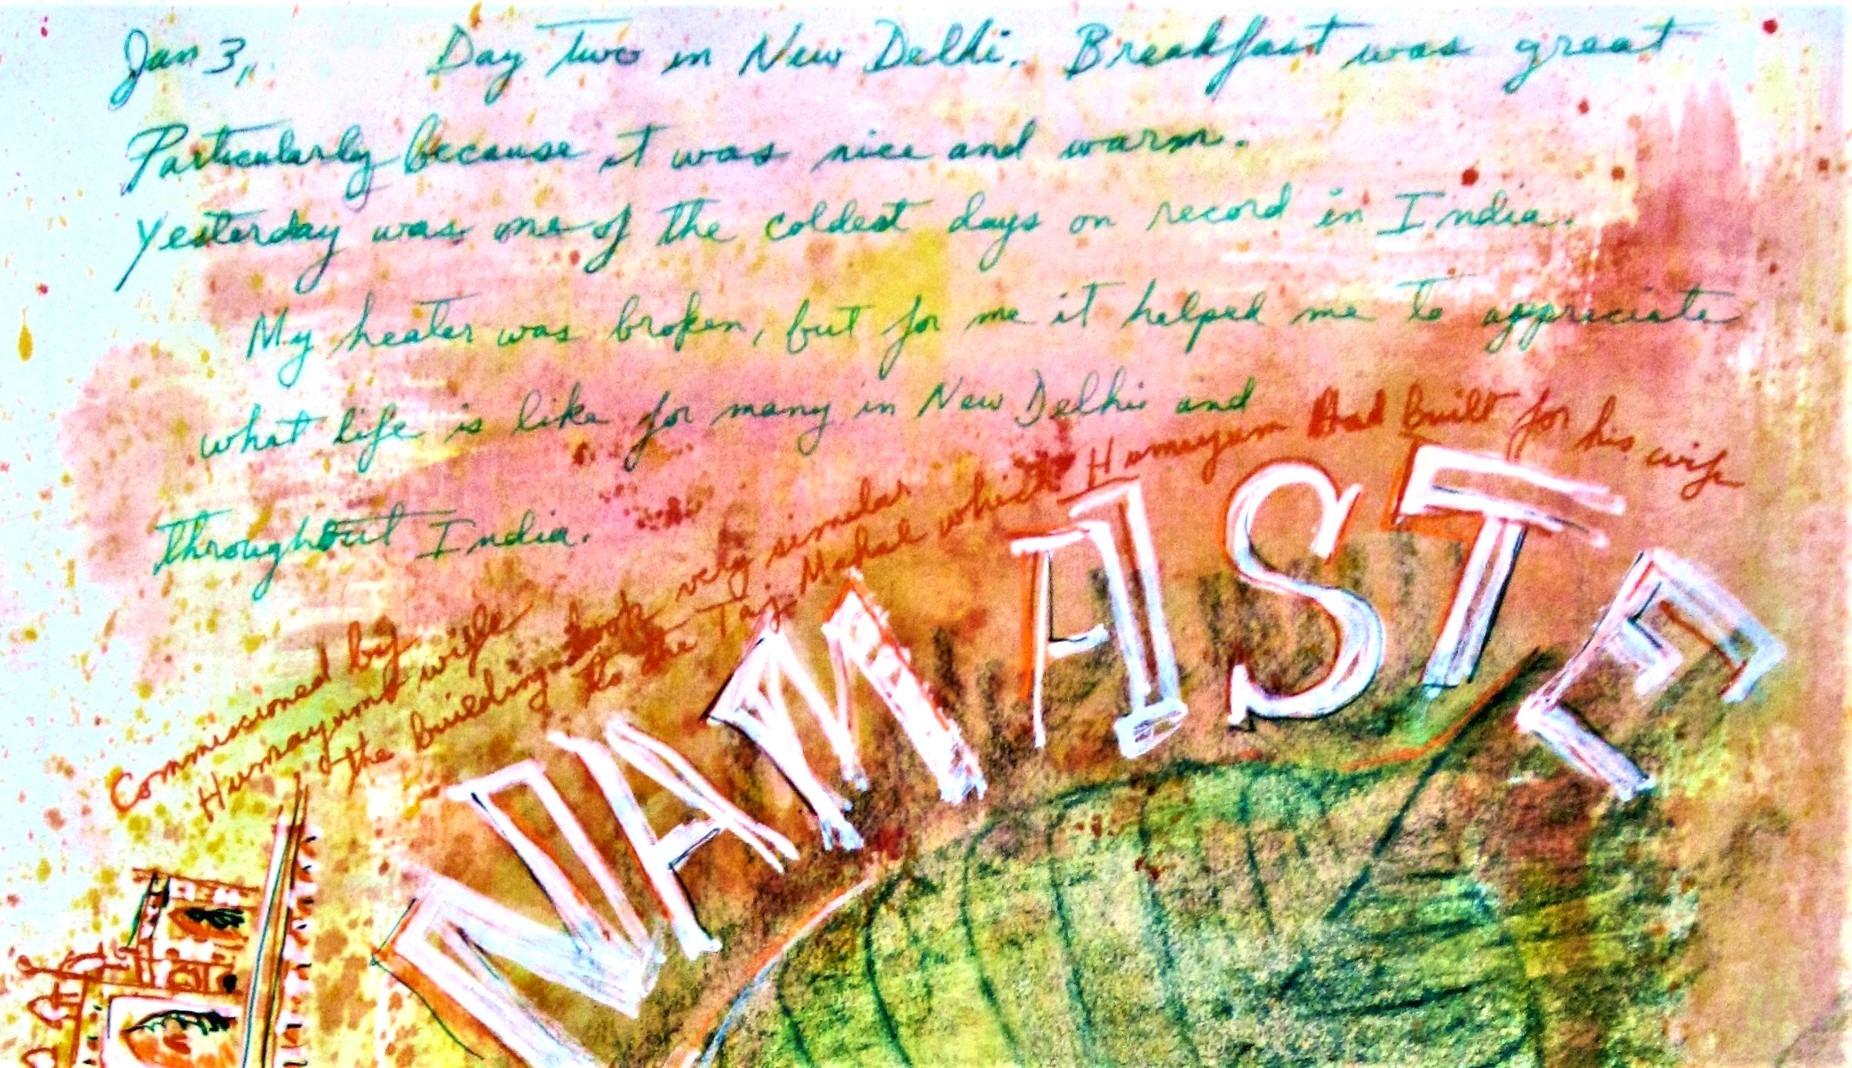 Jan 3, Day Two in New Delhi. Breakfast was great
Particularly because it was nice and warm.
Yesterday was one of the coldest days on record in India.
My heater was broken, but for me it helped me to appreciate
what life is like for many in New Delhi and
throughout India.
Commissioned by
Humayums wife
the building look very similar
to the Taj Mahal which Humuyum Had built for his wife
NAMASTE